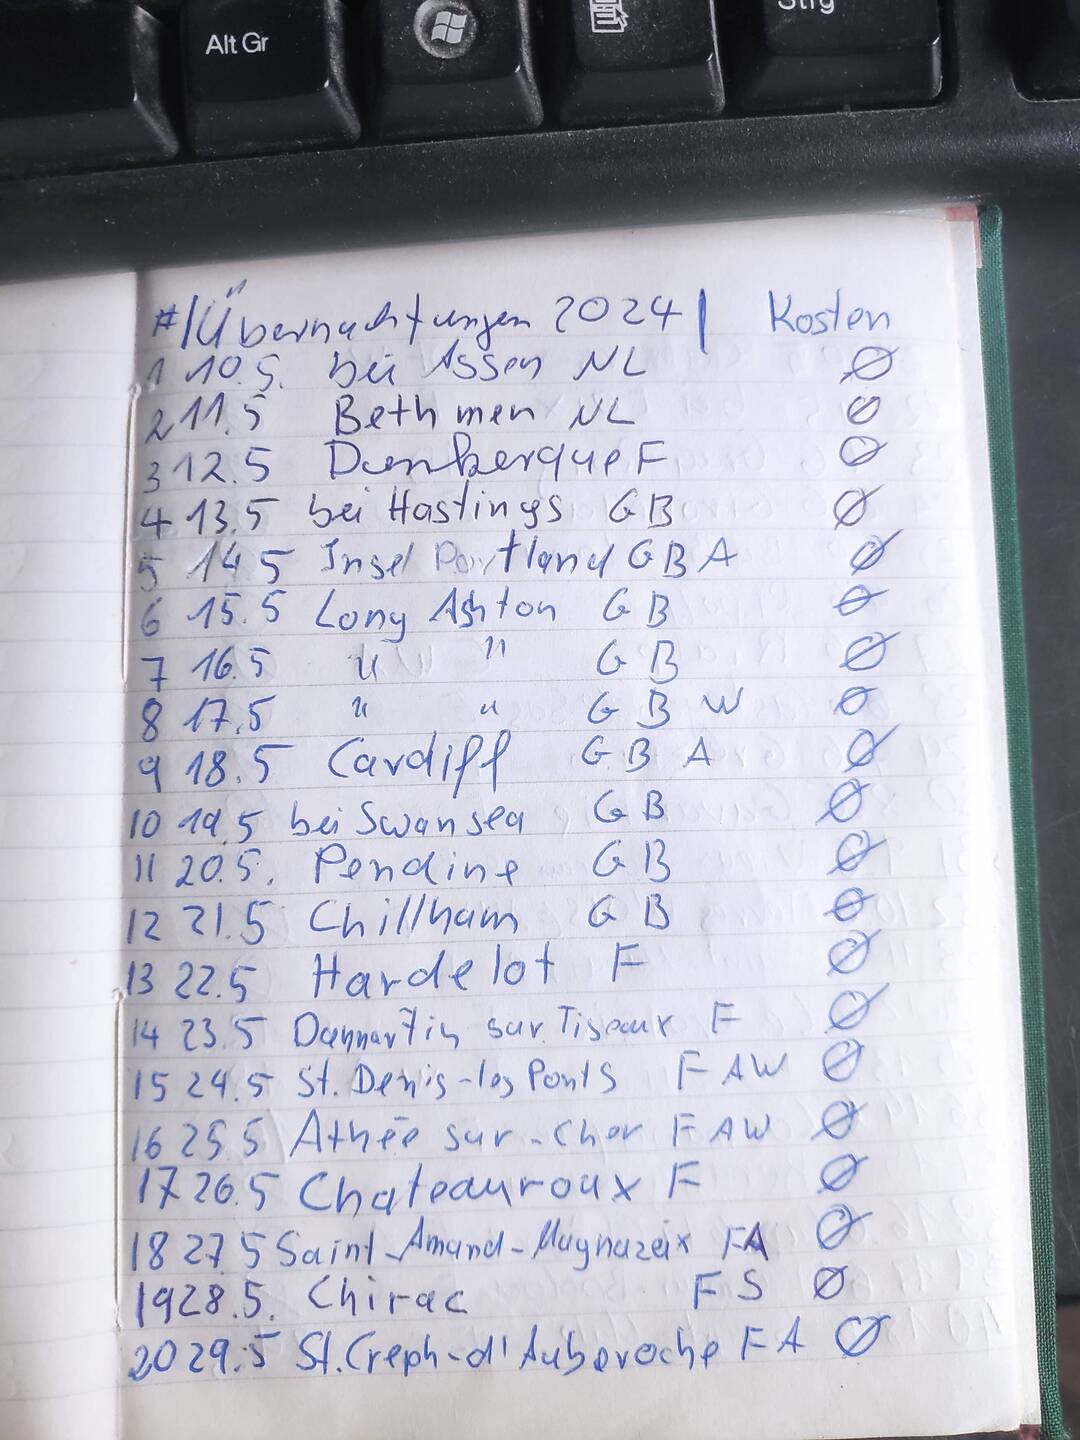 Alt Gr
Strg
#/Übernachtungen 2024 | Kosten
1 10.5. bei Assen NL Ø
2 11.5 Bethmen NL Ø
3 12.5 Dunberque F Ø
4 13.5 bei Hastings GB Ø
5 14.5 Insel Portland GB A Ø
6 15.5 Long Ashton GB Ø
7 16.5 " " GB Ø
8 17.5 " " GB W Ø
9 18.5 Cardiff GB A Ø
10 19.5 bei Swansea GB Ø
11 20.5. Pendine GB Ø
12 21.5 Chillham GB Ø
13 22.5 Hardelot F Ø
14 23.5 Dannartin sur Tiseaux F Ø
15 24.5 St. Denis-les Ponts F A W Ø
16 25.5 Athée sur-Cher F A W Ø
17 26.5 Chateauroux F Ø
18 27.5 Saint-Amand-Magnazeix F A Ø
19 28.5. Chirac F S Ø
20 29.5 St. Creph-d'Auberoche F A Ø